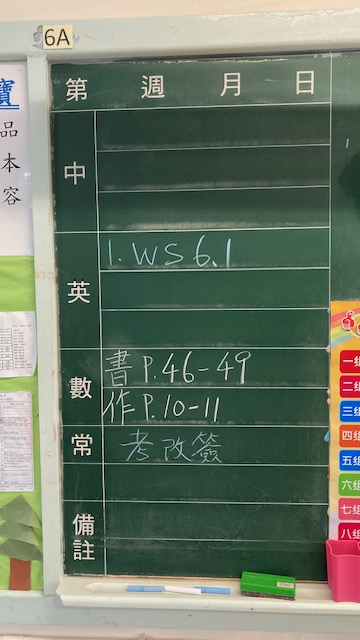 6A
第 週 月 日
寶
品
本
容
中
英
1. WS 6.1
數
書 P.46-49
作 P.10-11
常
考改簽
備註
一組
二組
三組
四組
五組
六組
七組
八組